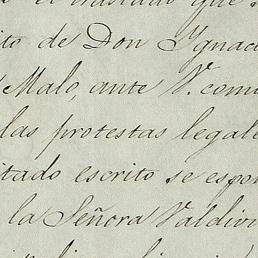 el traslado que
ito de Don Ygnaci
Malo, ante V. com
las protestas legale
itado escrito se espon
la Señora Valdivi